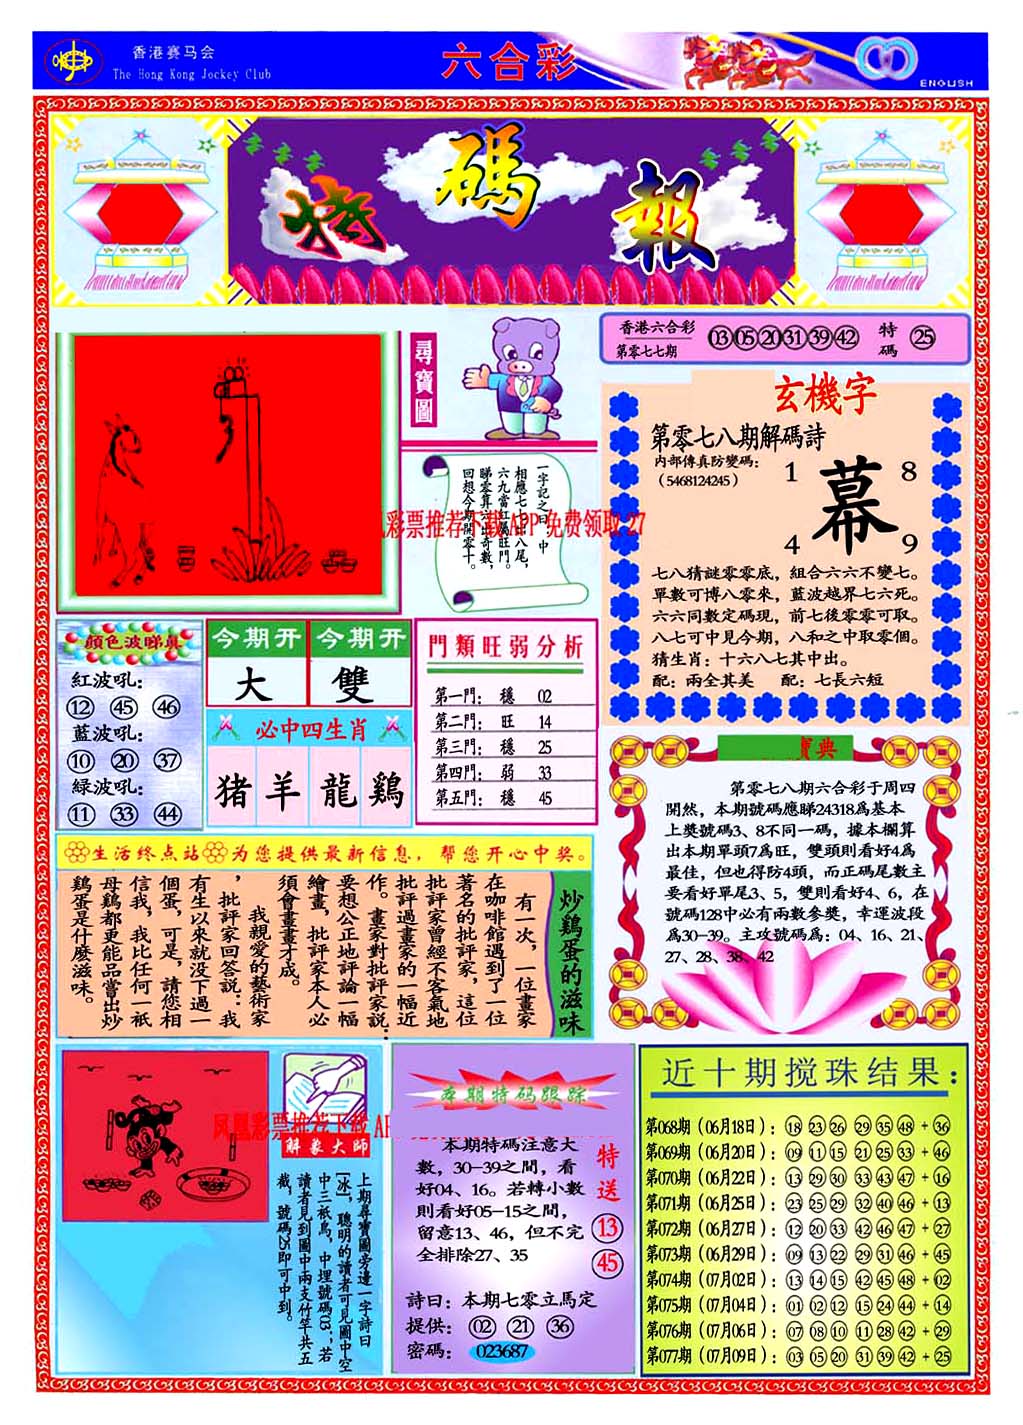 香港赛马会
The Hong Kong Jockey Club
六合彩
ENGLISH
特碼報
尋寶圖
一字記之曰：中
相應七七出八尾，
六九當紅屬旺門。
睇零算六出奇數，
回想今期開零十。
彩票推荐下载 APP 免费领取 27
香港六合彩
第零七七期
03 05 20 31 39 42
特碼
25
玄機字
第零七八期解碼詩
内部傳真防變碼：
（5468124245）
1 8
幕
4 9
七八猜謎零零底，組合六六不變七。
單數可博八零來，藍波越界七六死。
六六同數定碼現，前七後零零可取。
八七可中見今期，八和之中取零個。
猜生肖：十六八七其中出。
配：兩全其美 配：七長六短
顏色波睇真
紅波吼：
12 45 46
藍波吼：
10 20 37
緑波吼：
11 33 44
今期开 今期开
大 雙
必中四生肖
猪 羊 龍 鷄
門類旺弱分析
第一門： 穩 02
第二門： 旺 14
第三門： 穩 25
第四門： 弱 33
第五門： 穩 45
寶典
第零七八期六合彩于周四
開然，本期號碼應睇24318爲基本
上獎號碼3、8不同一碼，據本欄算
出本期單頭7爲旺，雙頭則看好4爲
最佳，但也得防4頭，而正碼尾數主
要看好單尾3、5，雙則看好4、6，在
號碼128中必有兩數參獎，幸運波段
爲30—39。主攻號碼爲：04、16、21、
27、28、38、42
生活终点站 为您提供最新信息，帮您开心中奖。
炒鷄蛋的滋味
有一次，一位畫家
在咖啡館遇到了一位
著名的批評家，這位
批評家曾經不客氣地
批評過畫家的一幅近
作。畫家對批評家説：
要想公正地評論一幅
繪畫，批評家本人必
須會畫畫才成。
我親愛的藝術家
，批評家回答説：我
有生以來就没下過一
個蛋，可是，請您相
信我，我比任何一衹
母鷄都更能品當出炒
鷄蛋是什麼滋味。
凤凰彩票推荐下载 AP
解象大師
上期尋寶圖旁邊一字詩曰
[冰]，聰明的讀者可見圖中空
中三衹鳥，中埋號碼03；若
讀者見到圖中兩支竹竿共五
截，號碼25即可中到。
本期特码跟踪
本期特碼注意大
數，30—39之間，看
好04、16。若轉小數
則看好05—15之間，
留意13、46，但不完
全排除27、35
特送
13
45
詩曰：本期七零立馬定
提供： 02 21 36
密碼： 023687
近十期搅珠结果：
第068期（06月18日）：18 23 26 29 35 48 + 36
第069期（06月20日）：09 11 15 21 25 33 + 46
第070期（06月22日）：13 29 30 33 43 47 + 16
第071期（06月25日）：23 25 29 32 40 46 + 13
第072期（06月27日）：12 20 33 42 46 47 + 27
第073期（06月29日）：09 13 22 29 31 46 + 45
第074期（07月02日）：13 14 15 42 45 48 + 02
第075期（07月04日）：01 02 12 15 24 44 + 14
第076期（07月06日）：07 08 10 11 28 42 + 29
第077期（07月09日）：03 05 20 31 39 42 + 25